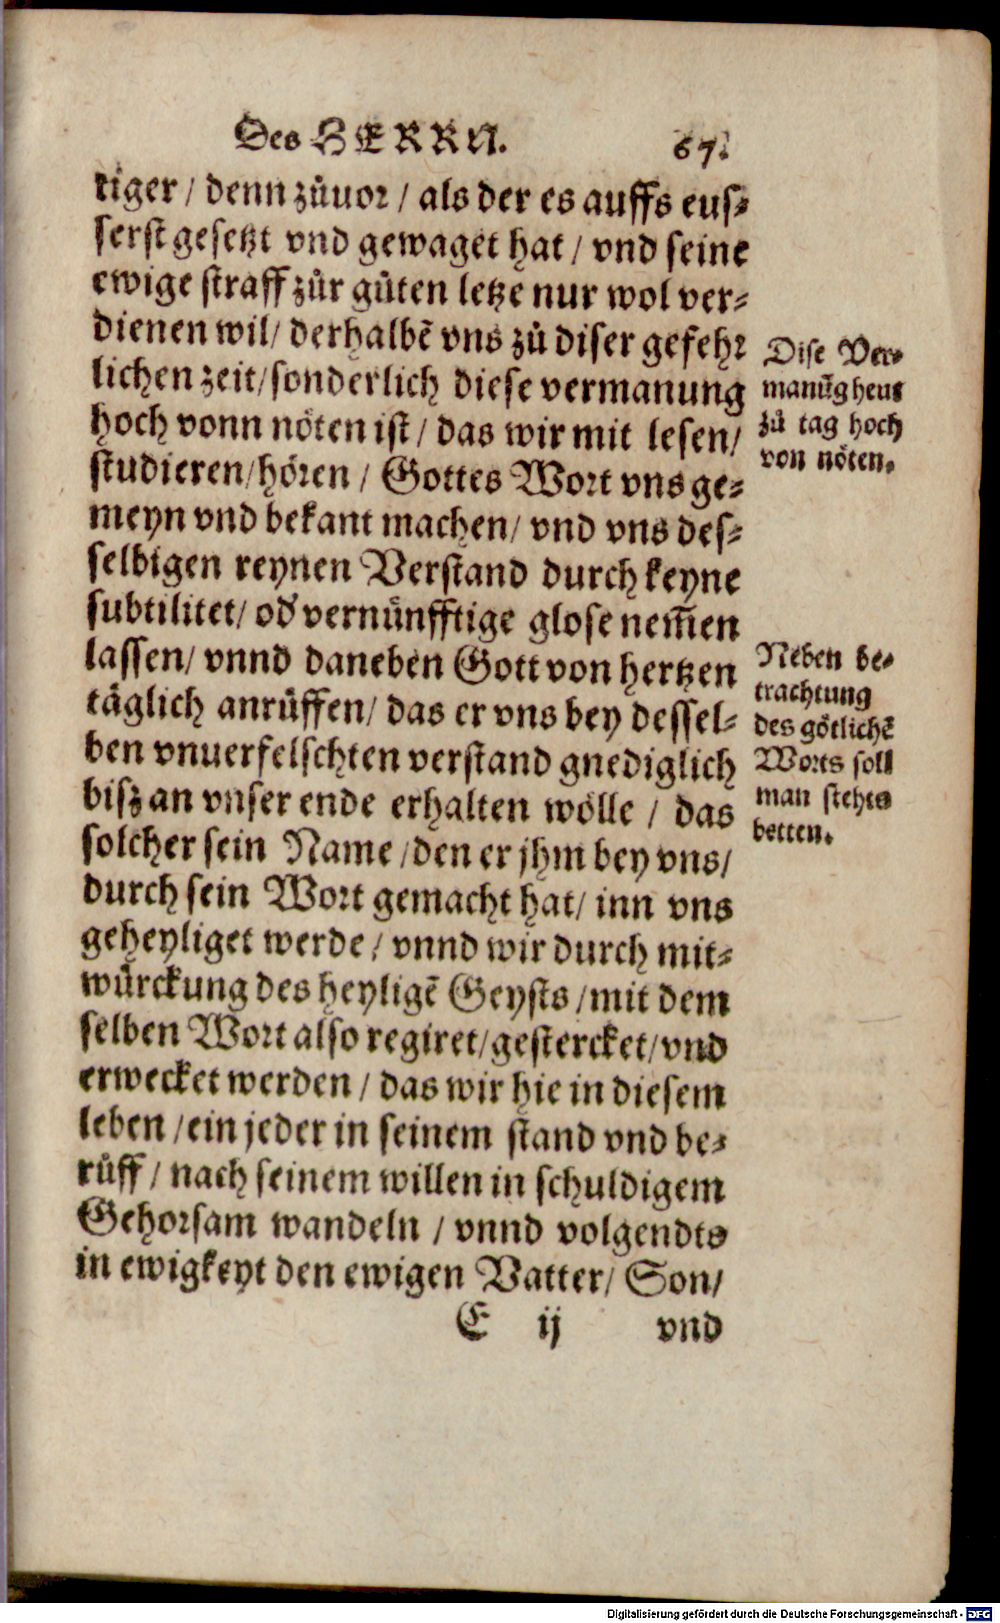 Des HERRN. 67.
tiger / denn zůuor / als der es auffs eus-
serst gesetzt vnd gewaget hat / vnd seine
ewige straff zůr gůten letze nur wol ver-
dienen wil / derhalbẽ vns zů diser gefehr
lichen zeit / sonderlich diese vermanung
hoch vonn nöten ist / das wir mit lesen /
studieren / hören / Gottes Wort vns ge-
meyn vnd bekant machen / vnd vns des-
selbigen reynen Verstand durch keyne
subtilitet / od' vernünfftige glose nem̃en
lassen / vnnd daneben Gott von hertzen
täglich anrůffen / das er vns bey dessel-
ben vnuerfelschten verstand gnediglich
bisz an vnser ende erhalten wölle / das
solcher sein Name / den er jhm bey vns /
durch sein Wort gemacht hat / inn vns
geheyliget werde / vnnd wir durch mit-
würckung des heyligẽ Geysts / mit dem
selben Wort also regiret / gestercket / vnd
erwecket werden / das wir hie in diesem
leben / ein jeder in seinem stand vnd be-
růff / nach seinem willen in schuldigem
Gehorsam wandeln / vnnd volgendts
in ewigkeyt den ewigen Vatter / Son /
E ij vnd
Dise Ver-
manũg heut
zů tag hoch
von nöten.
Neben be-
trachtung
des götlichẽ
Worts soll
man stehts
betten.
Digitalisierung gefördert durch die Deutsche Forschungsgemeinschaft - DFG